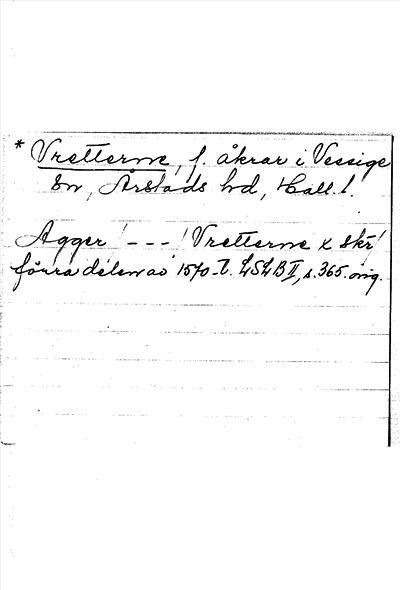 * Vretterne, f. åkrar i Vessige
sn, Årstads hd, Hall. l.
Agger ! - - - ! Vretterne x skr!
förra delen av 1570-t. LSLB II, s. 365. orig.